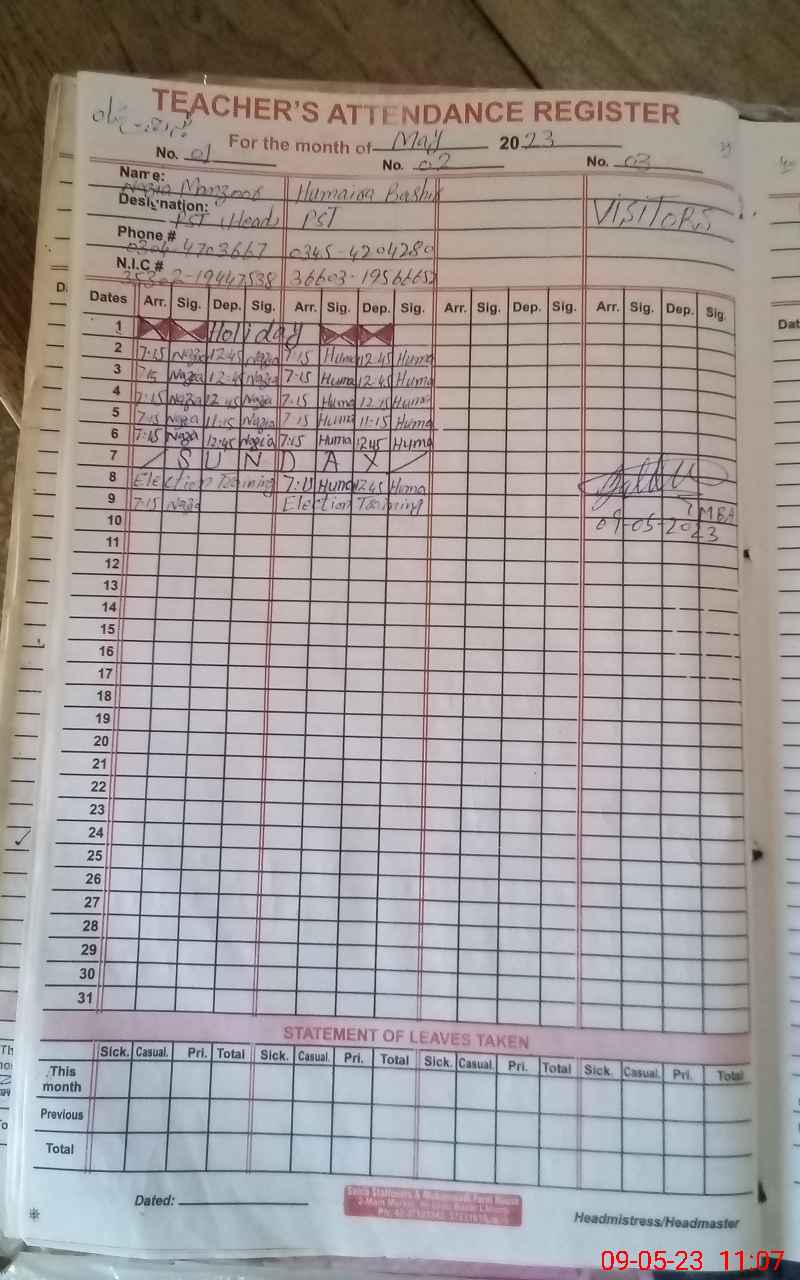 TEACHER'S ATTENDANCE REGISTER
For the month of May 2023
No. 01 No. 02 No. 03
Name: Nazia Manzoor Humaira Bashir VISITORS
Designation: PST (Head) PST
Phone # 0304-4703667 0345-4204280
N.I.C.#
Dates Arr. Sig. Dep. Sig. Arr. Sig. Dep. Sig. Arr. Sig. Dep. Sig. Arr. Sig. Dep. Sig.
1 Holiday
2 7:15 Nazia 12:45 Nazia 7:15 Huma 12:45 Huma
3 7:15 Nazia 12:45 Nazia 7:15 Huma 12:45 Huma
4 7:15 Nazia 12:45 Nazia 7:15 Huma Huma
5 7:15 Nazia 11:15 Nazia 7:15 Huma 11:15 Huma
6 7:15 Nazia 12:45 Nazia 7:15 Huma 12:45 Huma
7 SUNDAY
8 Election Training 7:15 Huma 12:45 Huma
9 7:15 Nazia Election Training
MEA
10 09-05-2023
11
12
13
14
15
16
17
18
19
20
21
22
23
24
25
26
27
28
29
30
31
STATEMENT OF LEAVES TAKEN
Sick. Casual. Pri. Total Sick. Casual. Pri. Total Sick. Casual. Pri. Total Sick. Casual. Pri. Total
This month
Previous
Total
Dated:
Headmistress/Headmaster
09-05-23 11:07